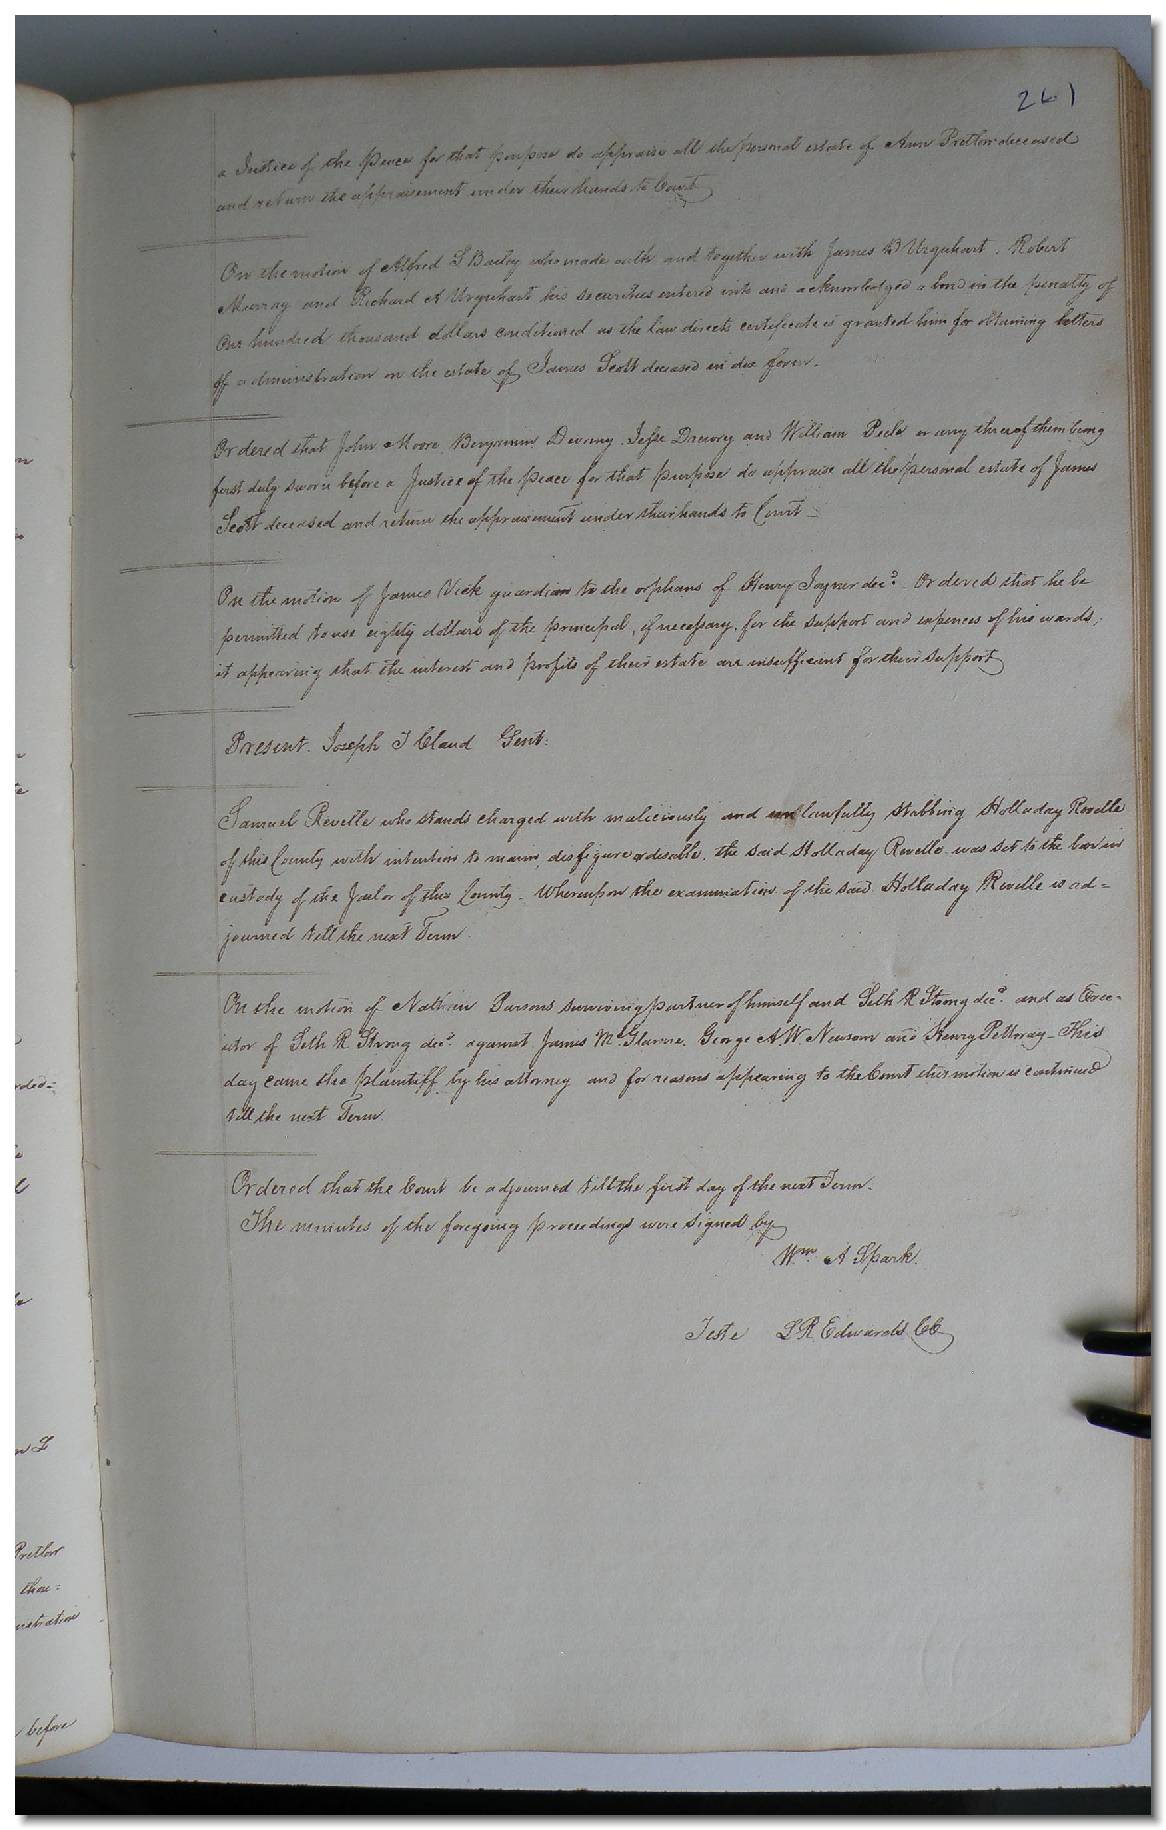 261
a Justice of the Peace for that purpose do appraise all the personal estate of Ann Pretlow deceased
and return the appraisement under their hands to Court
On the motion of Alfred L Bailey who made oath and together with James B Urquhart. Robert
Murray and Richard A Urquhart his securities entered into and acknowledged a bond in the penalty of
One hundred thousand dollars conditioned as the law directs certificate is granted him for obtaining letters
of administration on the estate of James Scott deceased in due form.
Ordered that John Moore, Benjamin Devany, Jesse Drewry and William Peele or any three of them being
first duly sworn before a Justice of the peace for that purpose do appraise all the personal estate of James
Scott deceased and return the appraisement under their hands to Court
On the motion of James Vick guardian to the orphans of Henry Joyner decd. Ordered that he be
permitted to use eighty dollars of the principal, if necessary, for the support and expences of his wards,
it appearing that the interest and profits of their estate are insufficient for their support
Present. Joseph T Claud Gent:
Samuel Revelle who stands charged with maliciously and unlawfully stabbing Holladay Revelle
of this County with intention to maim, disfigure & disable, the said Holladay Revelle was set to the bar in
custody of the Jailor of this County. Whereupon the examination of the said Holladay Revelle is ad=
journed till the next Term.
On the motion of Nathan Parsons surviving partner of himself and Seth R Strong decd. and as Exec=
utor of Seth R. Strong decd. against James McGlamre, George A. W. Newsom and Henry Pettway - This
day came the plaintiff by his attorney and for reasons appearing to the Court this motion is continued
till the next Term.
Ordered that the Court be adjourned till the first day of the next Term.
The minutes of the foregoing proceedings were signed by
Wm. A Spark.
Teste L R Edwards CC
n L
Pretlow
thou=
nistration
before